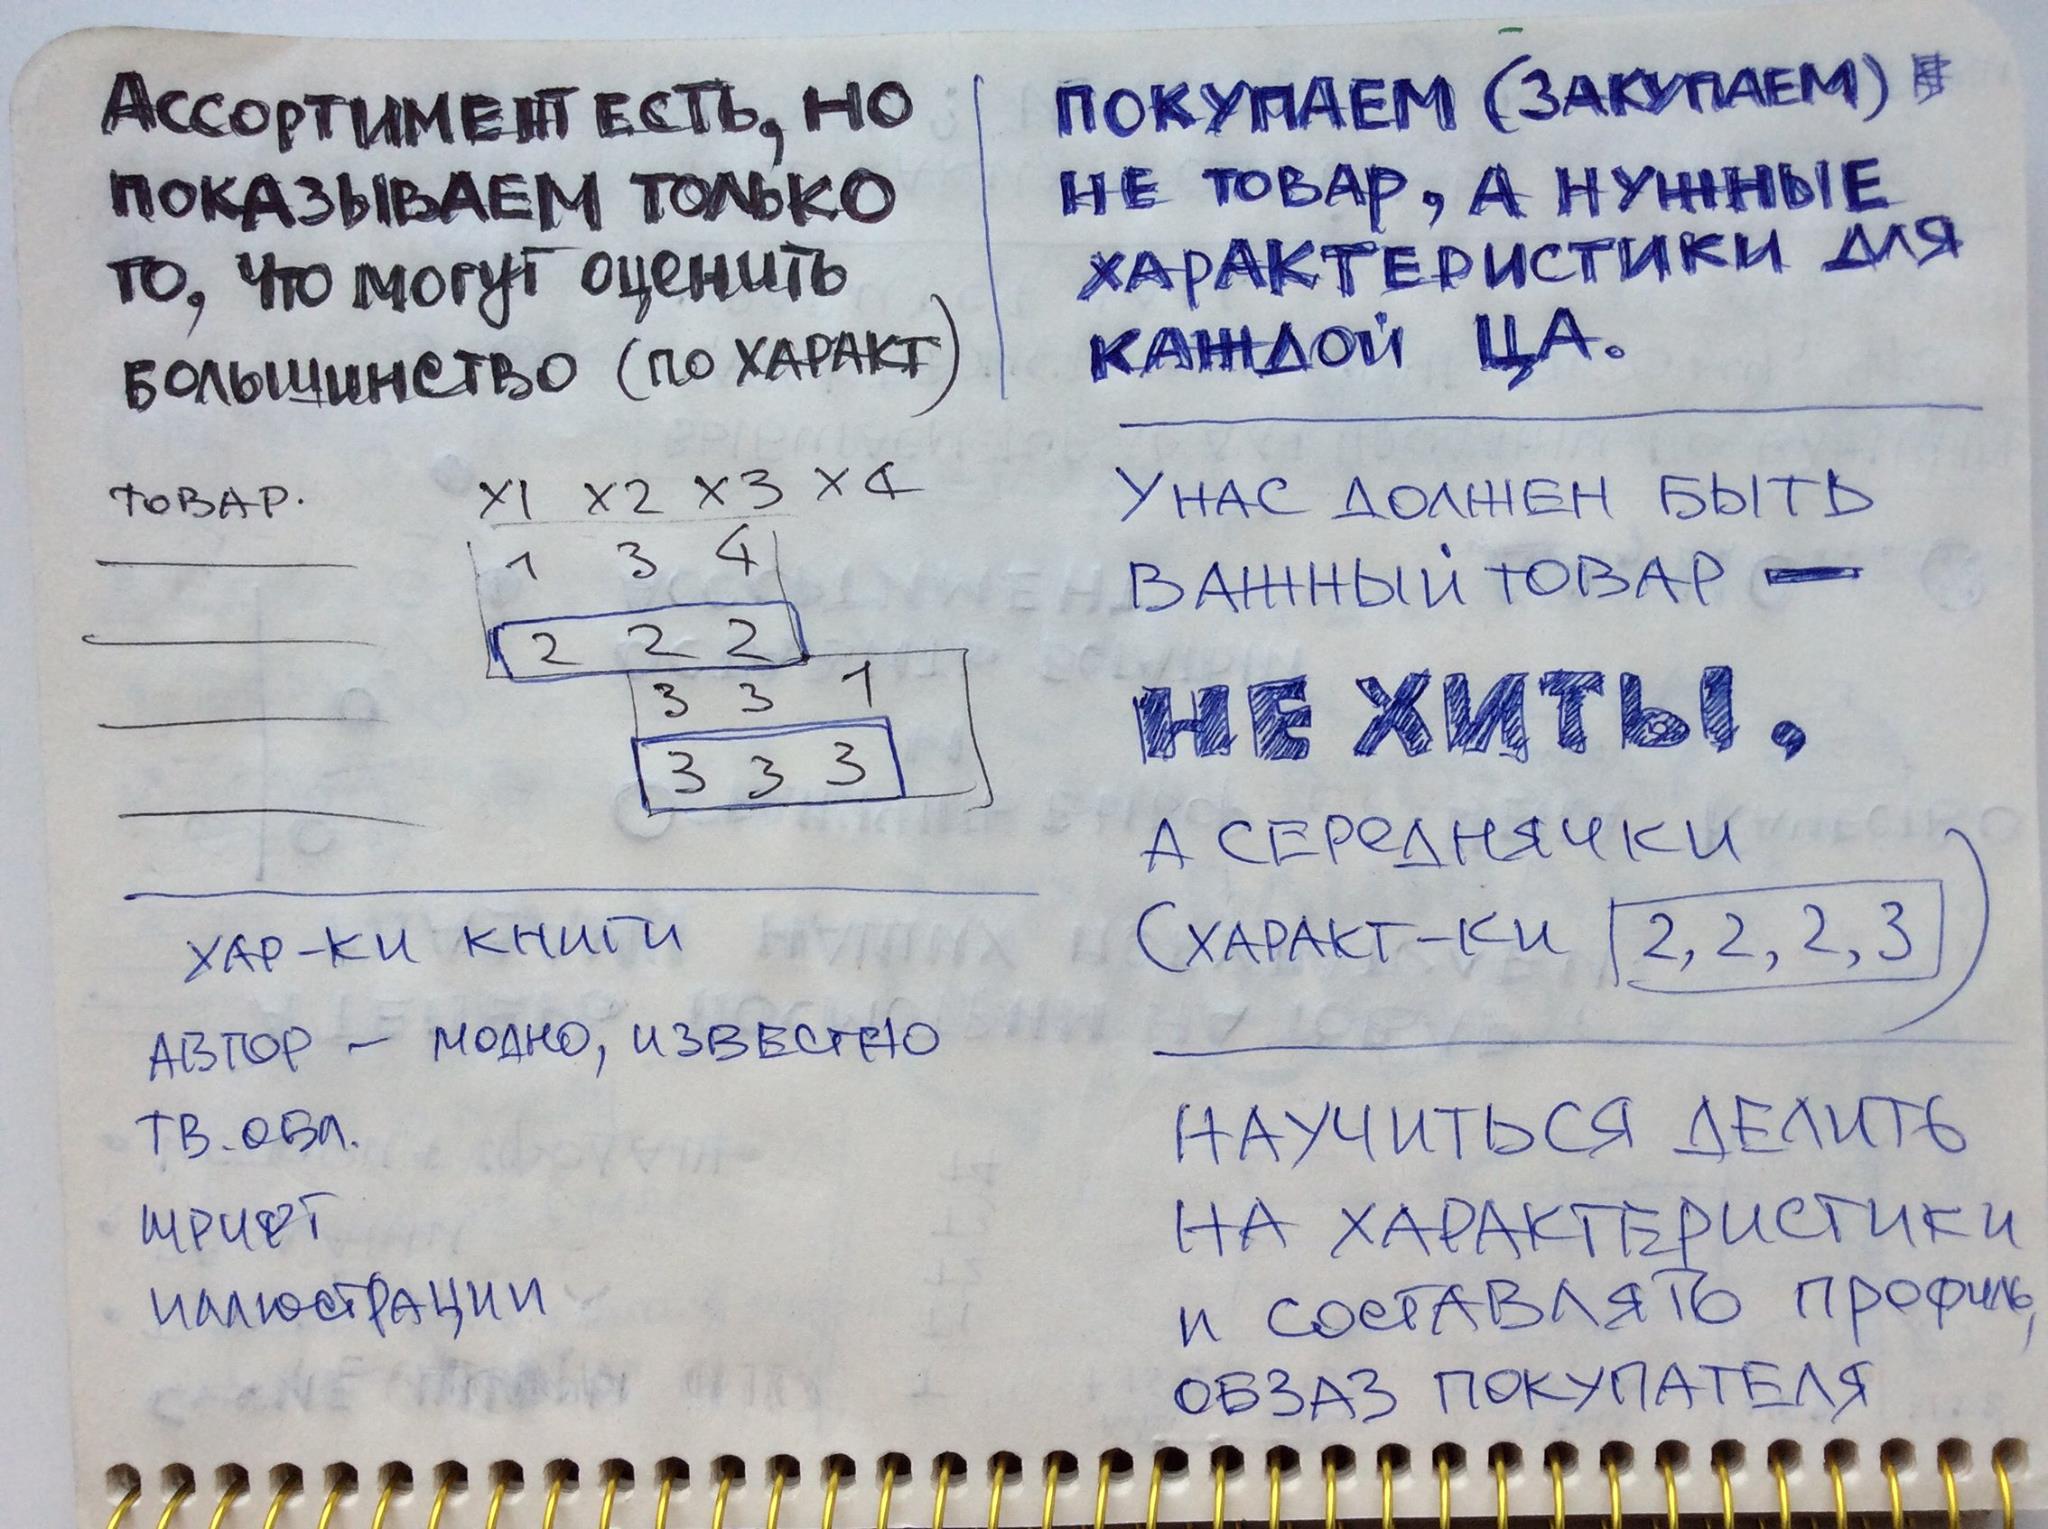 АССОРТИМЕНТ ЕСТЬ, НО
ПОКАЗЫВАЕМ ТОЛЬКО
ТО, ЧТО МОГУТ ОЦЕНИТЬ
БОЛЬШИНСТВО (ПО ХАРАКТ)
ТОВАР. X1 X2 X3 X4
1 3 4
2 2 2
3 3 1
3 3 3
ХАР-КИ КНИГИ
АВТОР – МОДНО, ИЗВЕСТНО
ТВ. ОБЛ.
ШРИФТ
ИЛЛЮСТРАЦИИ
ПОКУПАЕМ (ЗАКУПАЕМ)
НЕ ТОВАР, А НУЖНЫЕ
ХАРАКТЕРИСТИКИ ДЛЯ
КАЖДОЙ ЦА.
У НАС ДОЛЖЕН БЫТЬ
ВАЖНЫЙ ТОВАР —
НЕ ХИТЫ,
А СЕРЕДНЯЧКИ
(ХАРАКТ-КИ 2, 2, 2, 3)
НАУЧИТЬСЯ ДЕЛИТЬ
НА ХАРАКТЕРИСТИКИ
И СОСТАВЛЯТЬ ПРОФИЛЬ,
ОБЗАЗ ПОКУПАТЕЛЯ